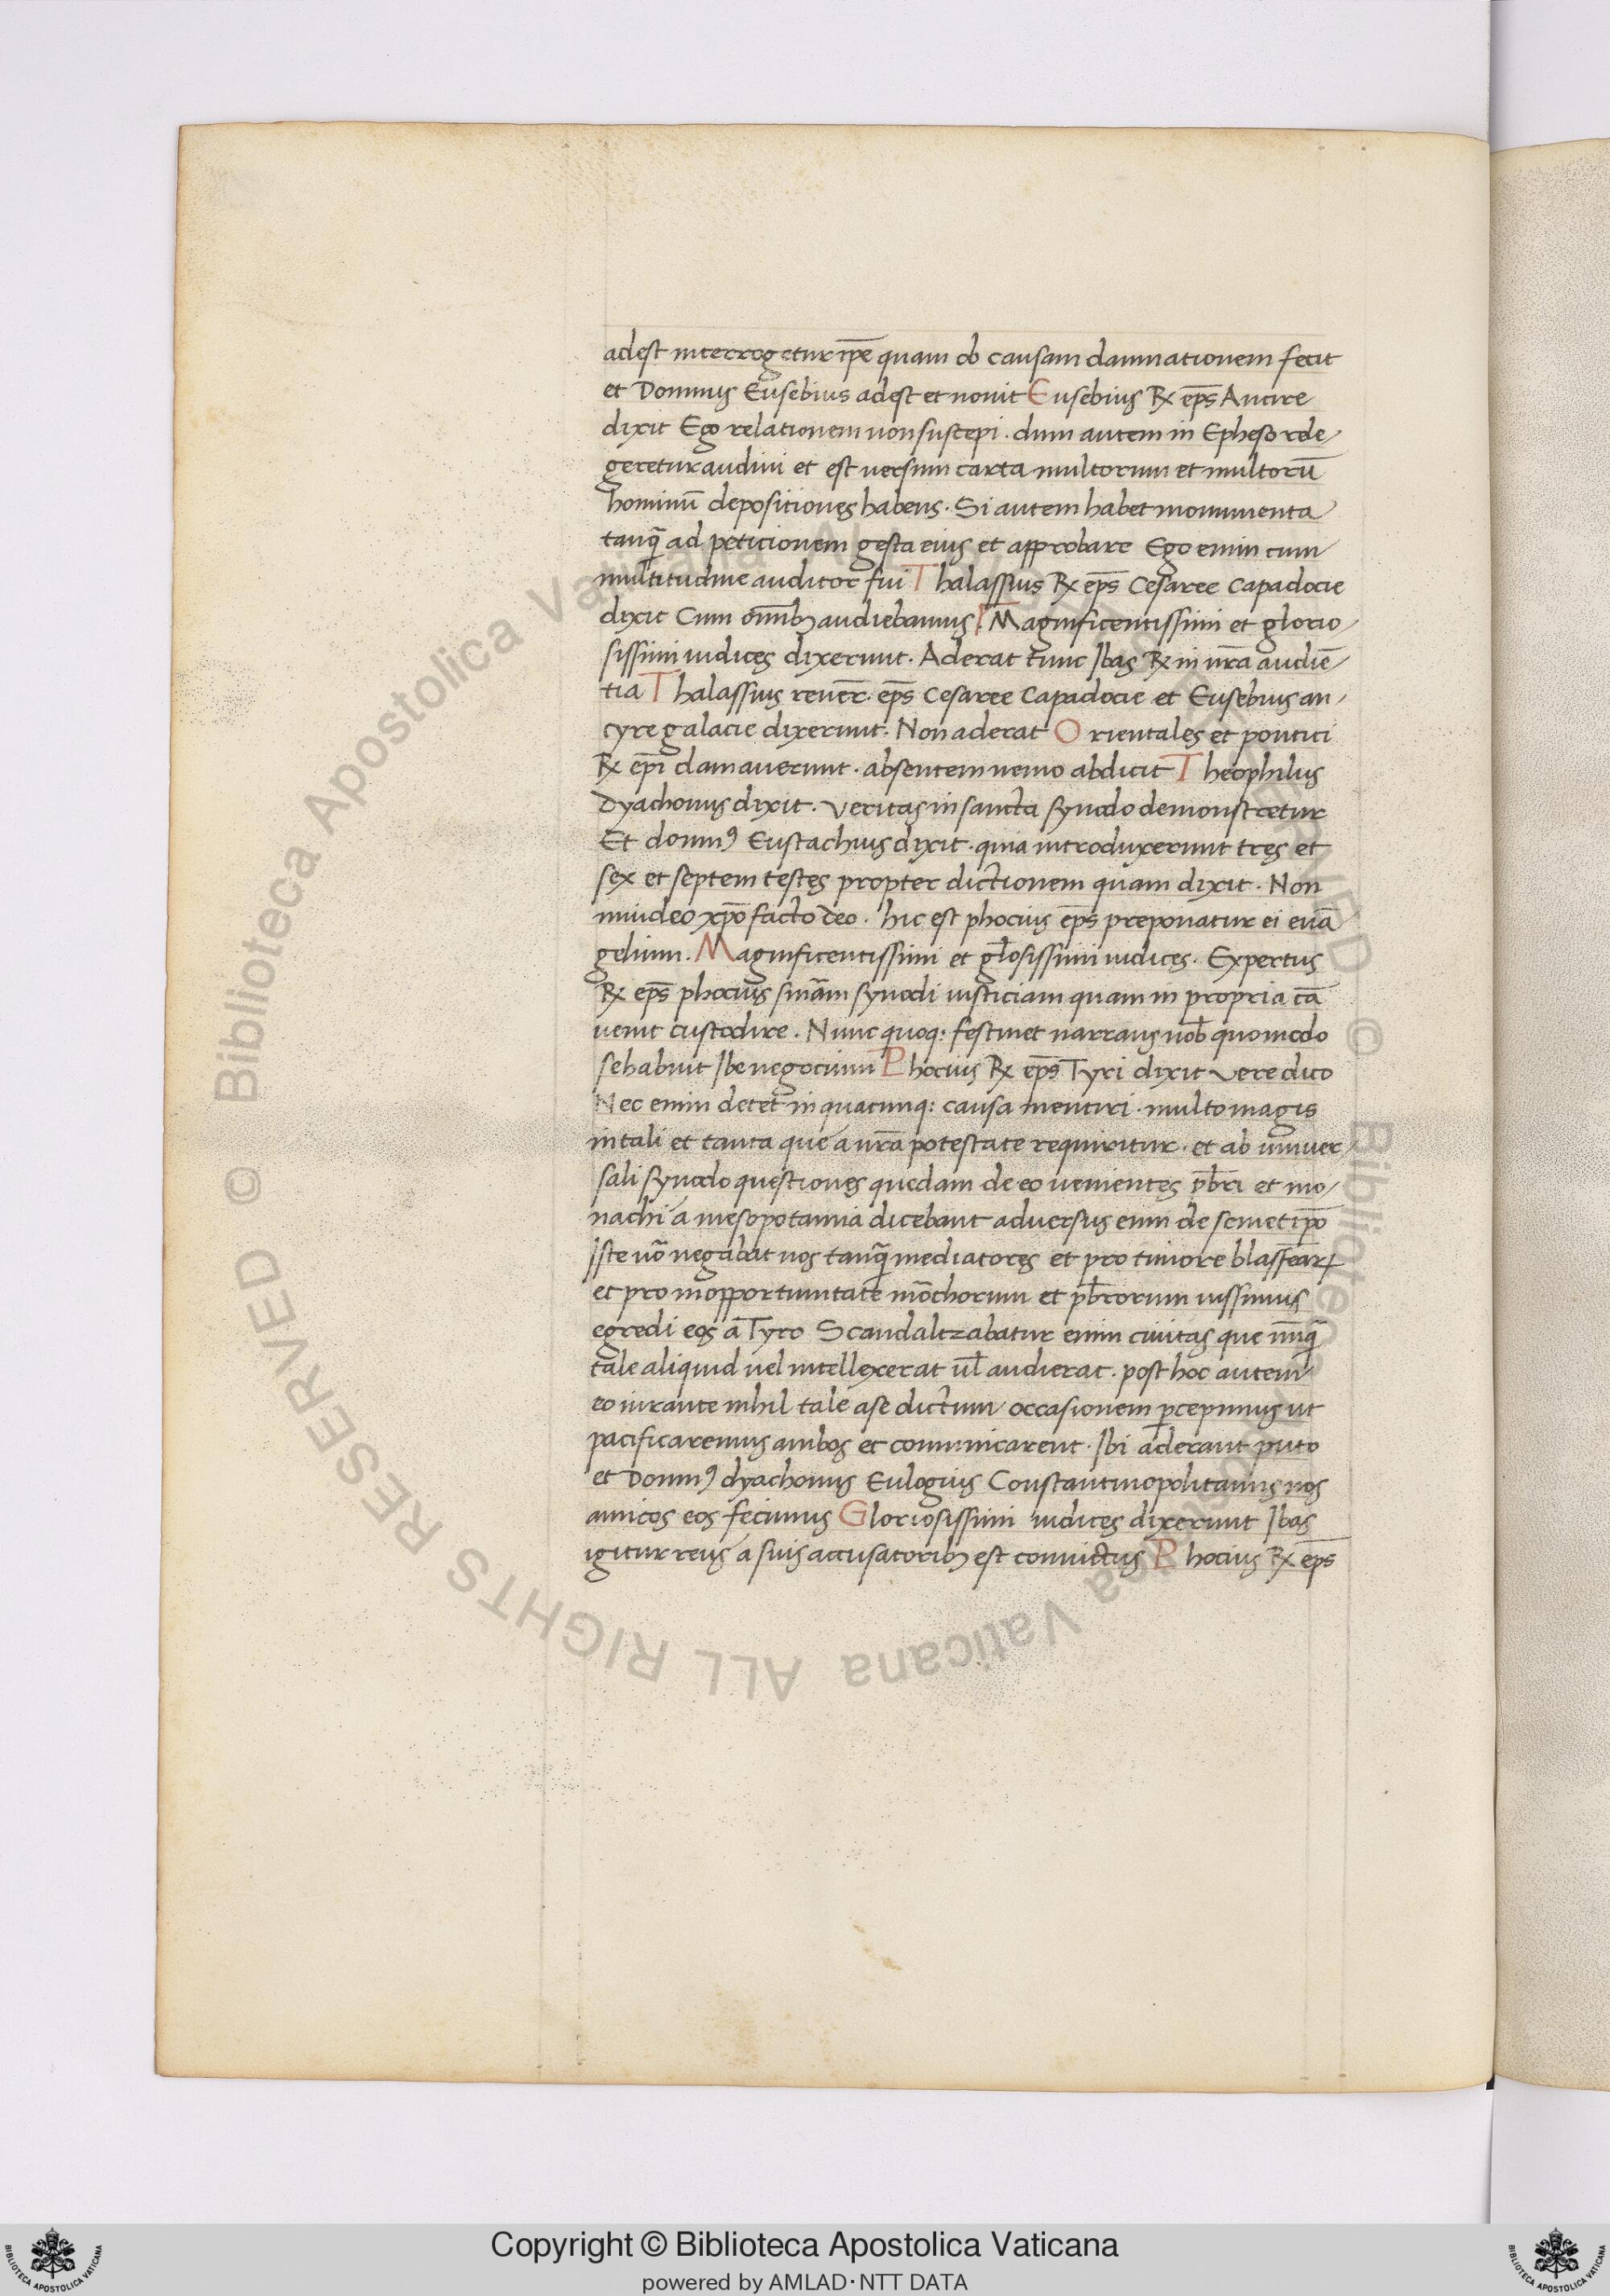 adest interrogetur ip̄e quam ob causam damnationem fecit
et Domnus Eusebius adest et novit Eusebius R℞ ep̄s Ancire
dixit Ego relationem non suscepi. dum autem in Epheso rele/
geretur audivi et est versum carta multorum et multorū
hominū depositiones habens. Si autem habet monumenta
tanq̄ ad peticionem gesta eius et approbare Ego enim cum
multitudine auditor fui Thalassius ℞ ep̄s Cesaree Capadocie
dixit Cum om̄ibꝫ audiebamus Magnificentissimi et glorio/
sissimi iudices dixerunt. Aderat tunc Ibas ℞ in vr̄a audiē/
tia Thalassius rever̄. ep̄s Cesaree Capadocie et Eusebius an/
cyre galacie dixerunt. Non aderat Orientales et pontici
℞ ep̄i clamaverunt. absentem nemo abdicit Theophilus
Dyachonus dixit. Veritas in sancta synodo demonstretur
Et domnꝰ Eustachius dixit. quia introduxerunt tres et
sex et septem testes propter dictionem quam dixit. Non
invideo xp̄o facto deo. hic est phocius ep̄s preponatur ei evā
gelium. Magnificentissimi et gl̄osissimi iudices. Expertus
℞ ep̄s phocius sm̄am synodi iusticiam quam in propria cā
venit custodire. Nunc quoq: festinet narrans nob̄ quomodo
se habuit Ibe negocium Phocius ℞ ep̄s Tyri dixit vere dico
Nec enim decet in quacunq: causa mentiri. multo magis
in tali et tanta que a vr̄a potestate requiritur. et ab univer/
sali synodo questiones quedam de eo venientes pb̄ri et mo/
nachi a mesopotamia dicebant adversus eum de semetip̄o
Iste vō negabat nos tanq̄ mediatores et pro timore blasfēaꝝ
et pro inopportunitate mōchorum et pb̄rorum iussimus
egredi eos a Tyro Scandalizabatur enim civitas que nūq̄
tale aliquid vel intellexerat ul̄ audierat. post hoc autem
eo iurante nihil tale a se dictum occasionem p̄cepimus ut
pacificaremus ambos et communicarent. Ibi aderant puto
et Domnꝰ dyachonus Eulogius Constantinopolitanus nos
amicos eos fecimus Gloriosissimi iudices dixerunt Ibas
igitur reus a suis accusatoribꝫ est convictus Phocius ℞ ep̄s
Copyright © Biblioteca Apostolica Vaticana
powered by AMLAD·NTT DATA